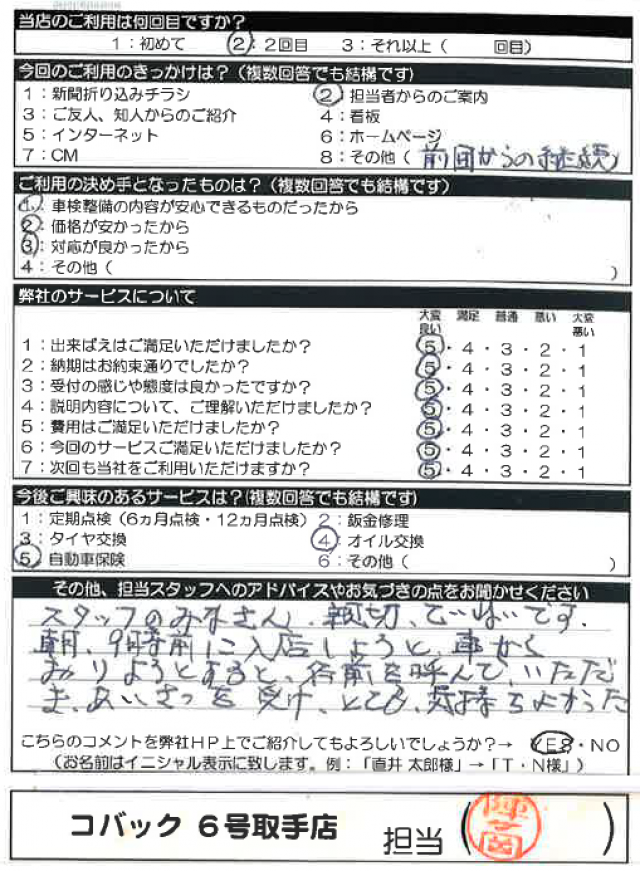 当店のご利用は何回目ですか？
1：初めて ②：2回目 3：それ以上（ 回目）
今回のご利用のきっかけは？（複数回答でも結構です）
1：新聞折り込みチラシ ②：担当者からのご案内
3：ご友人、知人からのご紹介 4：看板
5：インターネット 6：ホームページ
7：CM 8：その他（ 前回からの継続）
ご利用の決め手となったものは？（複数回答でも結構です）
①：車検整備の内容が安心できるものだったから
②：価格が安かったから
③：対応が良かったから
4：その他（ ）
弊社のサービスについて
大変良い 満足 普通 悪い 大変悪い
1：出来ばえはご満足いただけましたか？ ⑤・4・3・2・1
2：納期はお約束通りでしたか？ ⑤・4・3・2・1
3：受付の感じや態度は良かったですか？ ⑤・4・3・2・1
4：説明内容について、ご理解いただけましたか？ ⑤・4・3・2・1
5：費用はご満足いただけましたか？ ⑤・4・3・2・1
6：今回のサービスご満足いただけましたか？ ⑤・4・3・2・1
7：次回も当社をご利用いただけますか？ ⑤・4・3・2・1
今後ご興味のあるサービスは？(複数回答でも結構です)
1：定期点検（6ヵ月点検・12ヵ月点検） 2：鈑金修理
3：タイヤ交換 ④：オイル交換
⑤：自動車保険 6：その他（ ）
その他、担当スタッフへのアドバイスやお気づきの点をお聞かせください
スタッフのみなさん、親切、ていねいです.
朝、9時前に入店しようと、車から
おりようとすると、名前を呼んで、いただ
き、あいさつを受け、とても、気持ちよかった
こちらのコメントを弊社HP上でご紹介してもよろしいでしょうか？→ YES・NO
（お名前はイニシャル表示に致します。例：「直井 太郎様」→「T・N様」）
コバック 6号取手店 担当（ ）